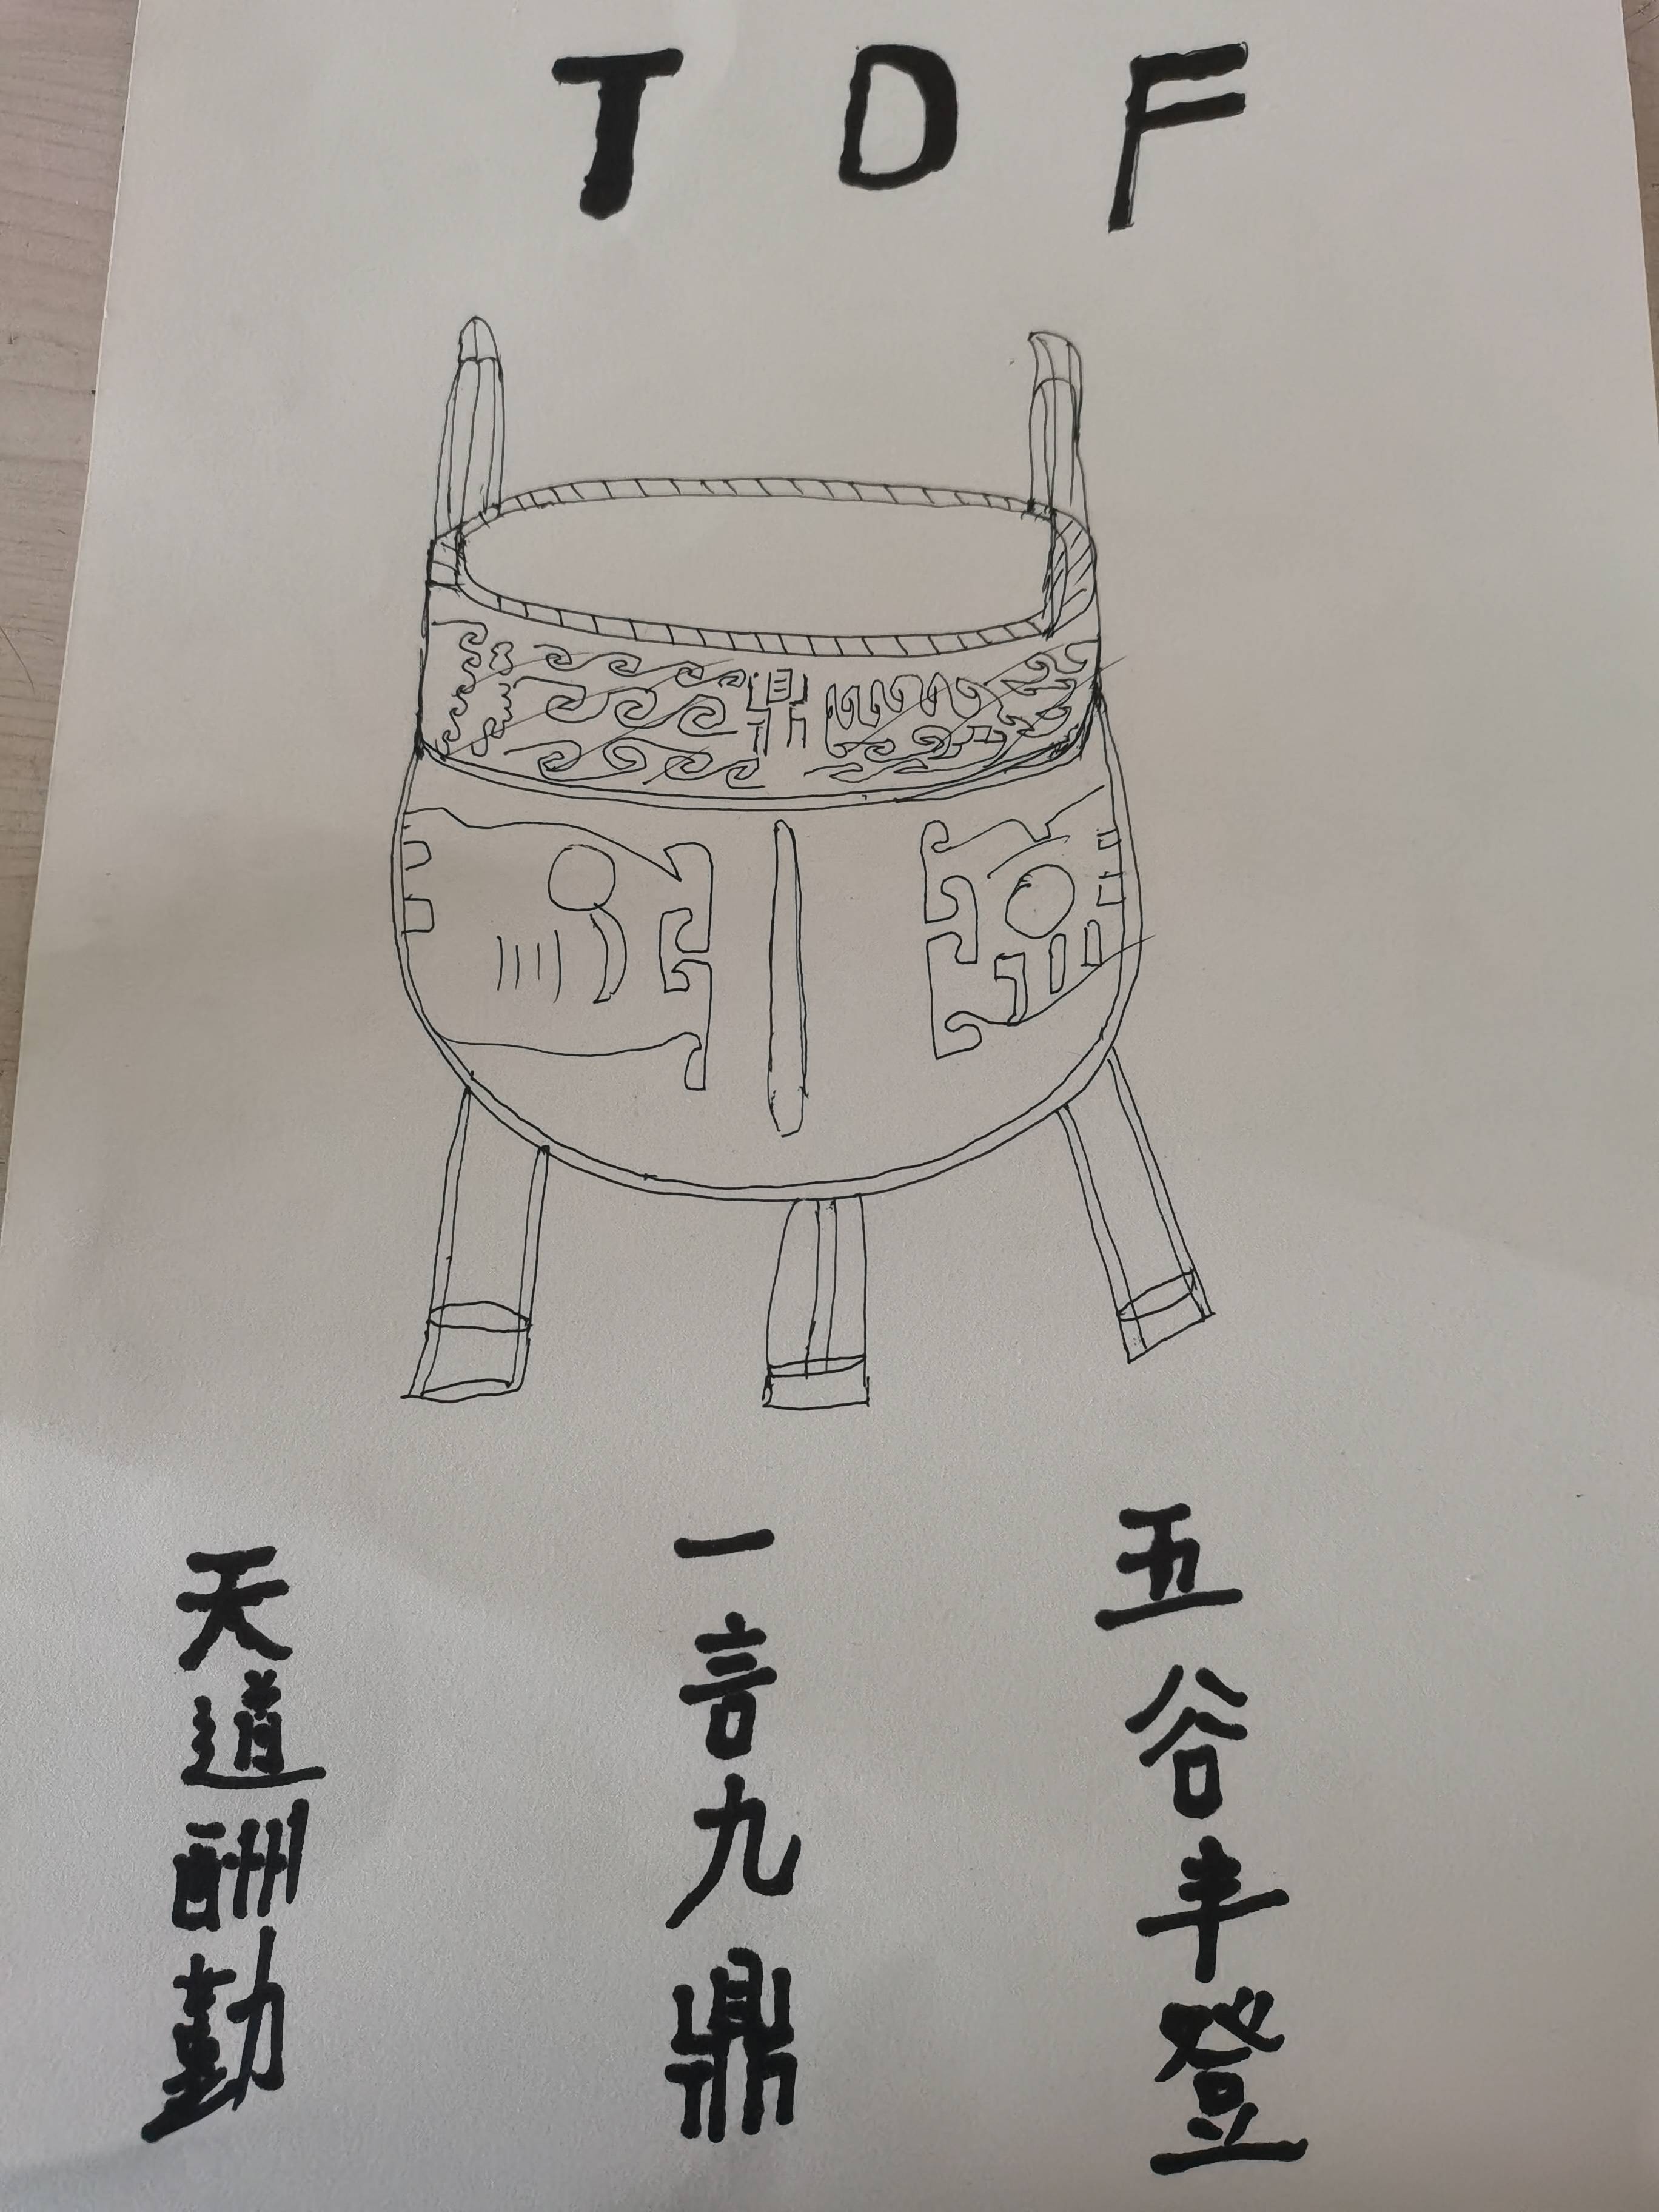 T D F
鼎
天道酬勤
一言九鼎
五谷丰登